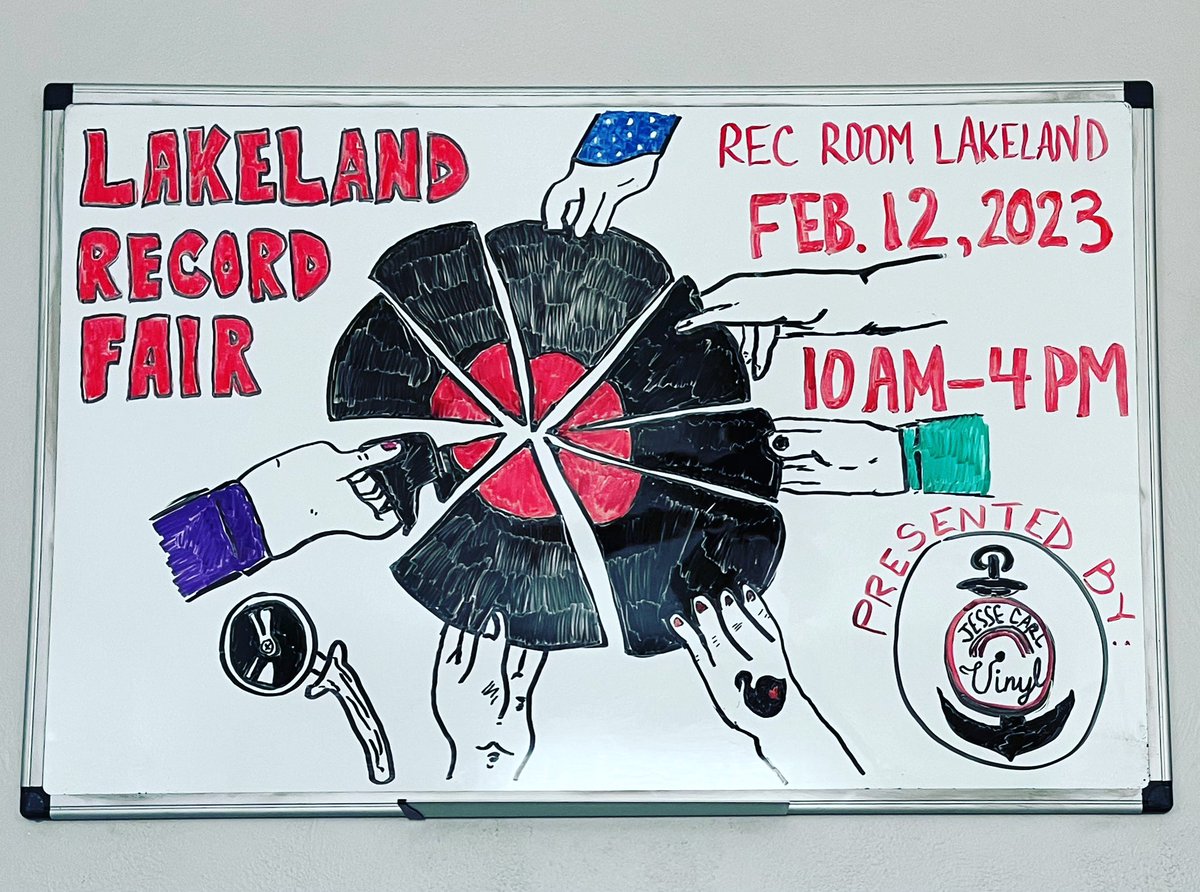 LAKELAND
RECORD
FAIR
REC ROOM LAKELAND
FEB. 12, 2023
10 AM-4 PM
PRESENTED BY:
JESSE CARL
Vinyl